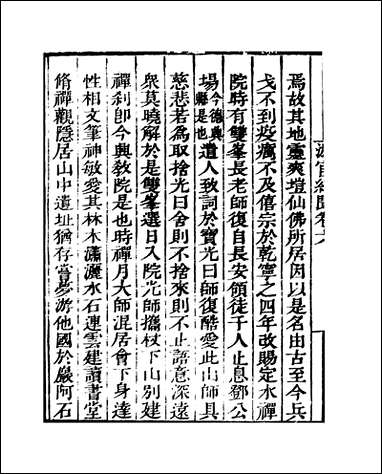 卷六
焉故其地靈爽壇仙佛所居因以是名由古至今兵
戈不到疫癘不及僖宗於乾寧之四年改賜定水禪
院時有雙峯長老師復自長安領徒千人止息鄧公
場今德興縣是也遣人致詞於寶光曰師復酷愛此山師具
慈悲若為取捨光曰舍則不捨來則不止語意深遠
衆莫曉解於是雙峯選日入院光師攜杖下山別建
禪刹即今興教院是也時禪月大師混居會下身達
性相文筆神敏愛其林木瀟灑水石連雲建讀書堂
脩禪觀隱居山中遺址猶存嘗夢游他國於巖阿石